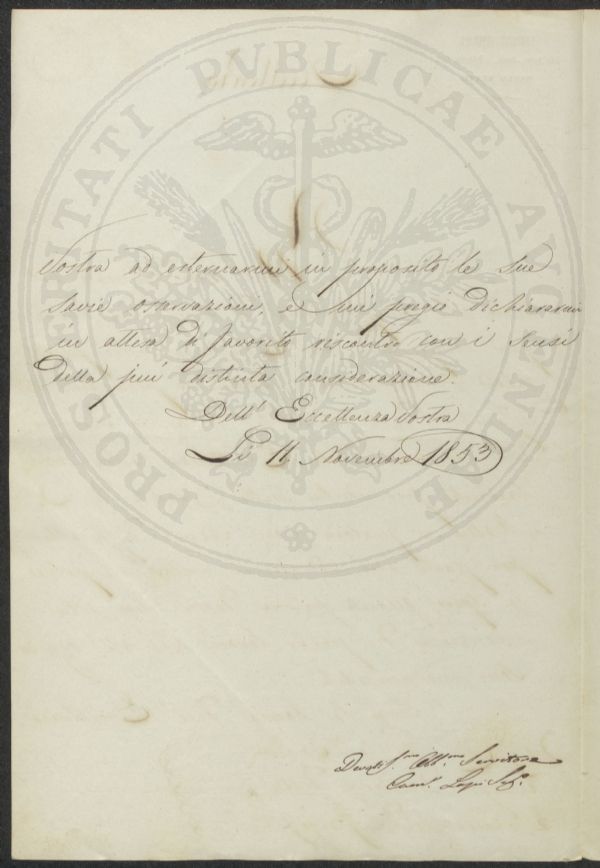 PROSPERITATI PVBLICAE AVGENDAE
Vostra ad esternarmi in proposito le sue
savie osservazioni, e mi pregio dichiararmi
in attesa di favorito riscontro con i sensi
della piu distinta considerazione.
Dell' Eccellenza Vostra
Li 11 Novembre 1853
Devotis.mo Obb.mo Servitore